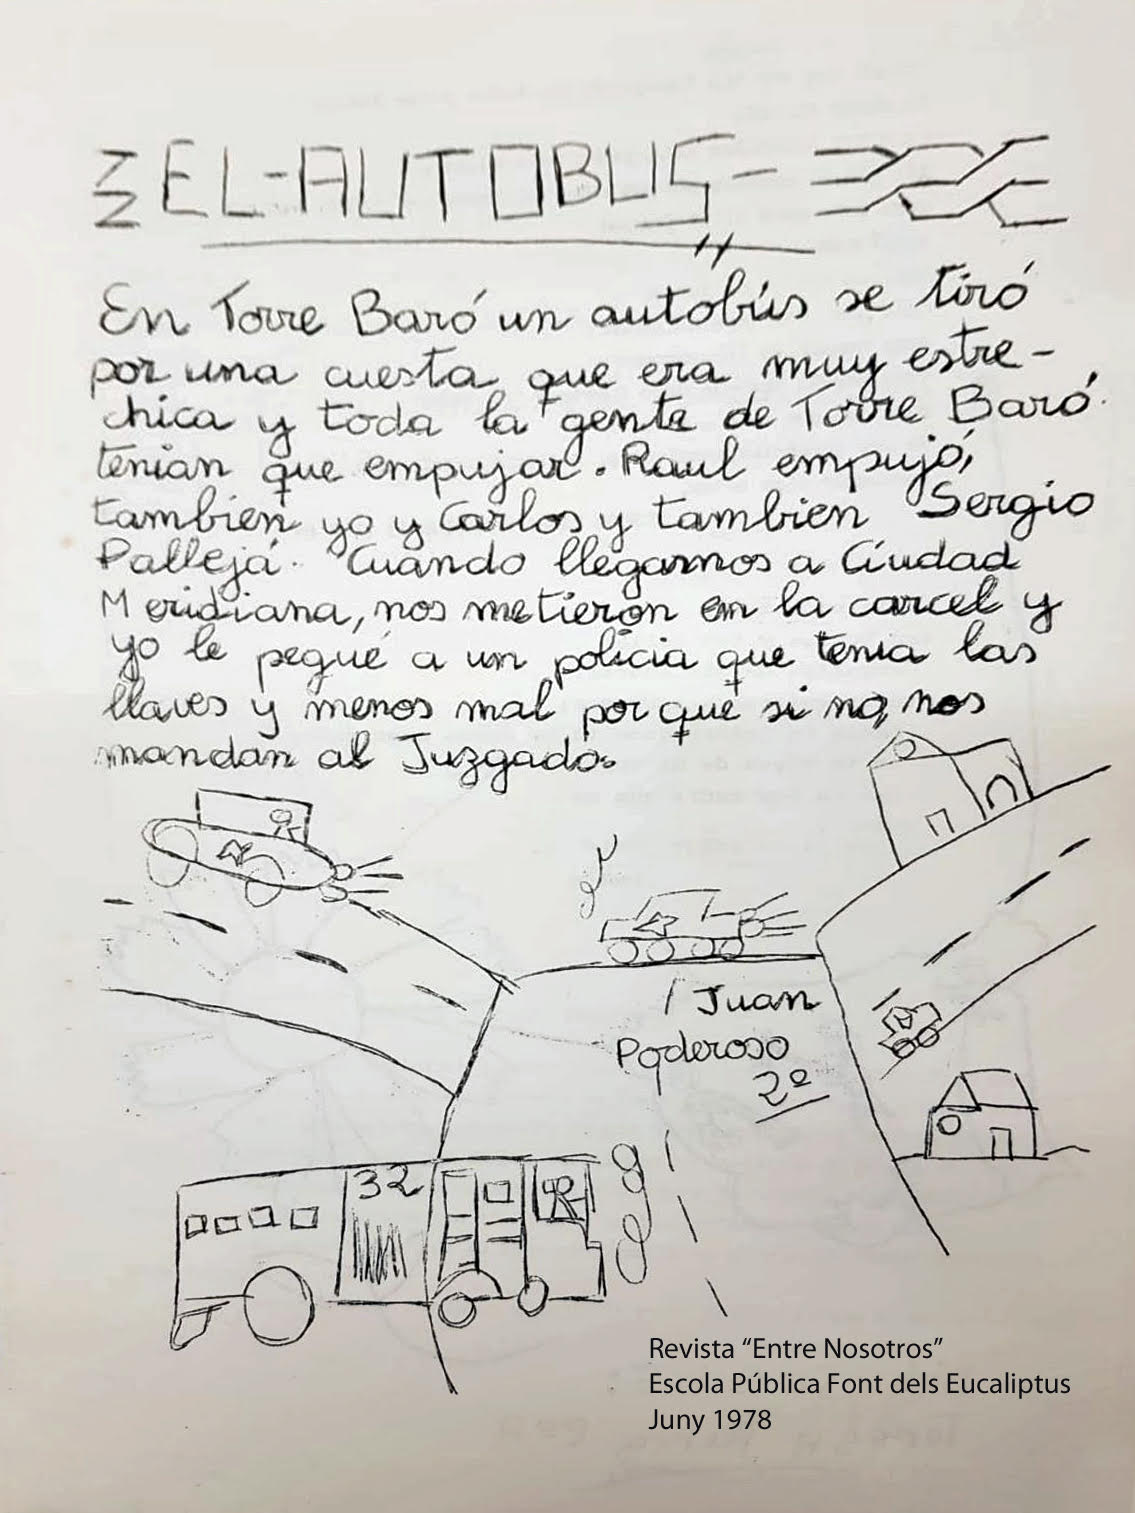 EL-AUTOBUS-
En Torre Baró un autobús se tiró
por una cuesta que era muy estre-
chica y toda la gente de Torre Baró
tenian que empujar. Raul empujó,
tambien yo y Carlos y tambien Sergio
Pallejá. Cuando llegamos a Ciudad
Meridiana, nos metieron en la carcel y
yo le pegué a un policia que tenia las
llaves y menos mal porque si no, nos
mandan al Juzgado.
Juan
Poderoso
2º
32
Revista “Entre Nosotros”
Escola Pública Font dels Eucaliptus
Juny 1978